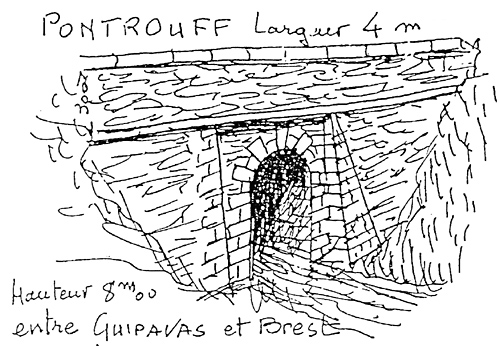 PONTROUFF Largeur 4 m
Hauteur 8m00
entre GUIPAVAS et Brest